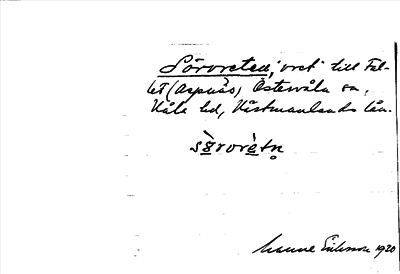 Sörvreten, vret till Fal-
let (Aspnäs) Östervåla sn,
Våla hd, Västmanlands län.
sö̀rvrètn̥
Manne Eriksson 1920